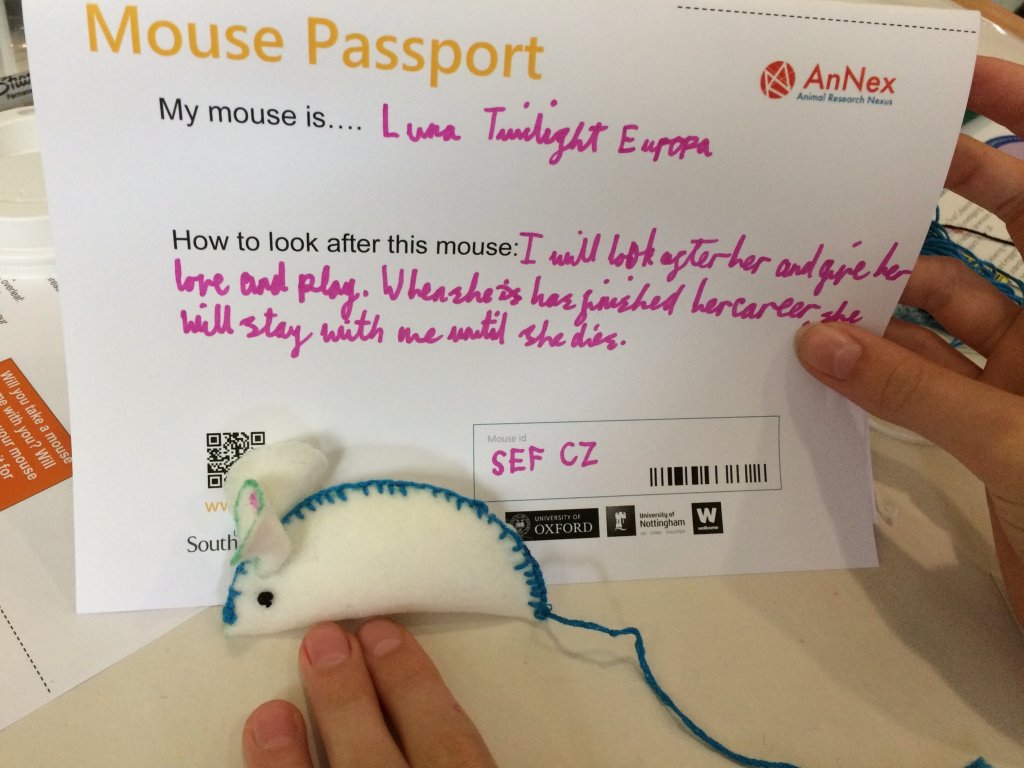 Mouse Passport
AnNex
Animal Research Nexus
My mouse is.... Luna Twilight Europa
How to look after this mouse: I will look after her and give her
love and play. When she is has finished her career, she
will stay with me until she dies.
Mouse id
SEF CZ
ww
South
UNIVERSITY OF
OXFORD
University of
Nottingham
UK | CHINA | MALAYSIA
W
wellcome
Will you take a mouse
me with you? Will
your mouse
it for